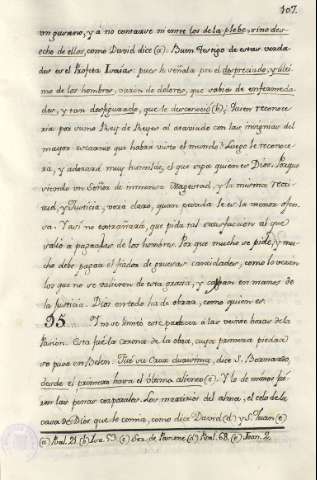 107.
un gusano, y á no contarse ni entre los de la plebe, sino des-
echo de ellos, como David dice (a). Buen testigo de estas verda-
des es el Profeta Isaías: pues le señala por el despreciado, y ulti-
mo de los hombres, varón de dolores, que sabio de enfermeda-
des, y tan desfigurado, que le desconoció (b). Quien reconoce-
ría por sumo Rey de Reyes al ataviado con las insignias del
mayor escarnio que habia visto el mundo? Luego le recono-
cerá, y adorará muy humilde, el que sepa quien es Dios. Porque
viendo un Señor de inmensa Magestad, y la misma Recti-
tud, y Justicia, verá claro, quan pesada le es la menor ofen-
sa. Y asi no extrañará, que pida tal satisfaccion al que
salió a pagarlas de los hombres. Por que mucho se pide, y mu-
cho debe pagar el fiador de gruesas cantidades, como lo verán
los que no se valieren de esta gracia, y caygan en manos de
la Justicia. Dios en todo ha de obrar, como quien es.
95 Y no se limitó esta pobreza a las veinte horas de la
Pasion. Esta fué la corona de la obra, cuya primera piedra
se puso en Belen. Fué su Cruz durisima, dice S. Bernardo,
desde el primera hora el último aliento (c). Y lo de menos fué-
ron las penas corporales. Los martirios del alma, el celo de la
casa de Dios que le comia, como dice David (d) y S. Juan (e)
(a) Psal. 21. (b) Isa. 53. (c) Ser. de Passione (d) Psal. 68. (e) Joan. 2.